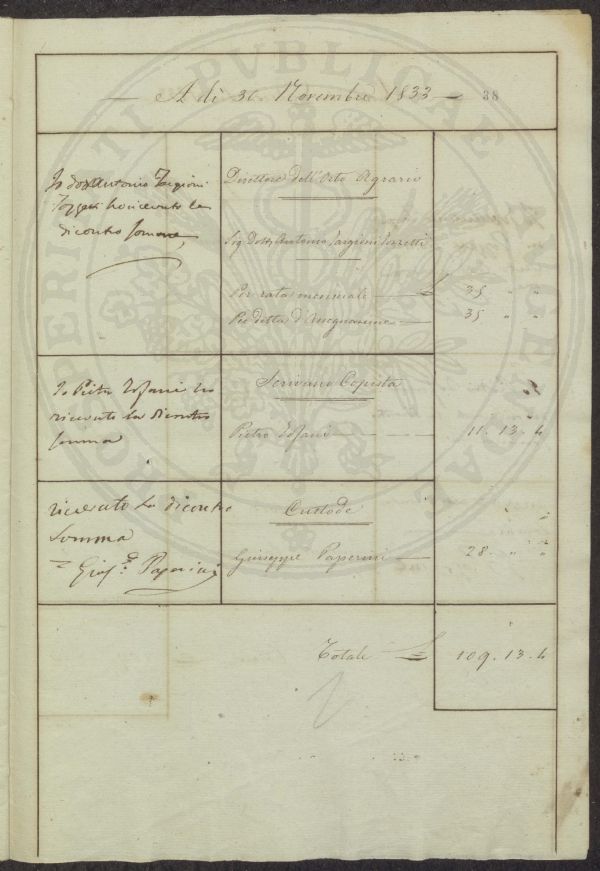 A dì 30. Novembre 1833
38
Io dott Antonio Targioni
Tozzetti ho ricevuto la
dicontro somma
Direttore dell'Orto Agrario
Sig Dott Antonio Targioni Tozzetti
Per rata mensuale £ 35 " "
Per detta d'Insegnamento 35 " "
Io Pietro ho
ricevuto la dicontro
somma
Scrivano Copista
Pietro 11. 13. 4
ricevuto la dicontro
Somma
Giuse. Paperini
Custode
Giuseppe Paperini 28. " "
Totale £ 109. 13. 4